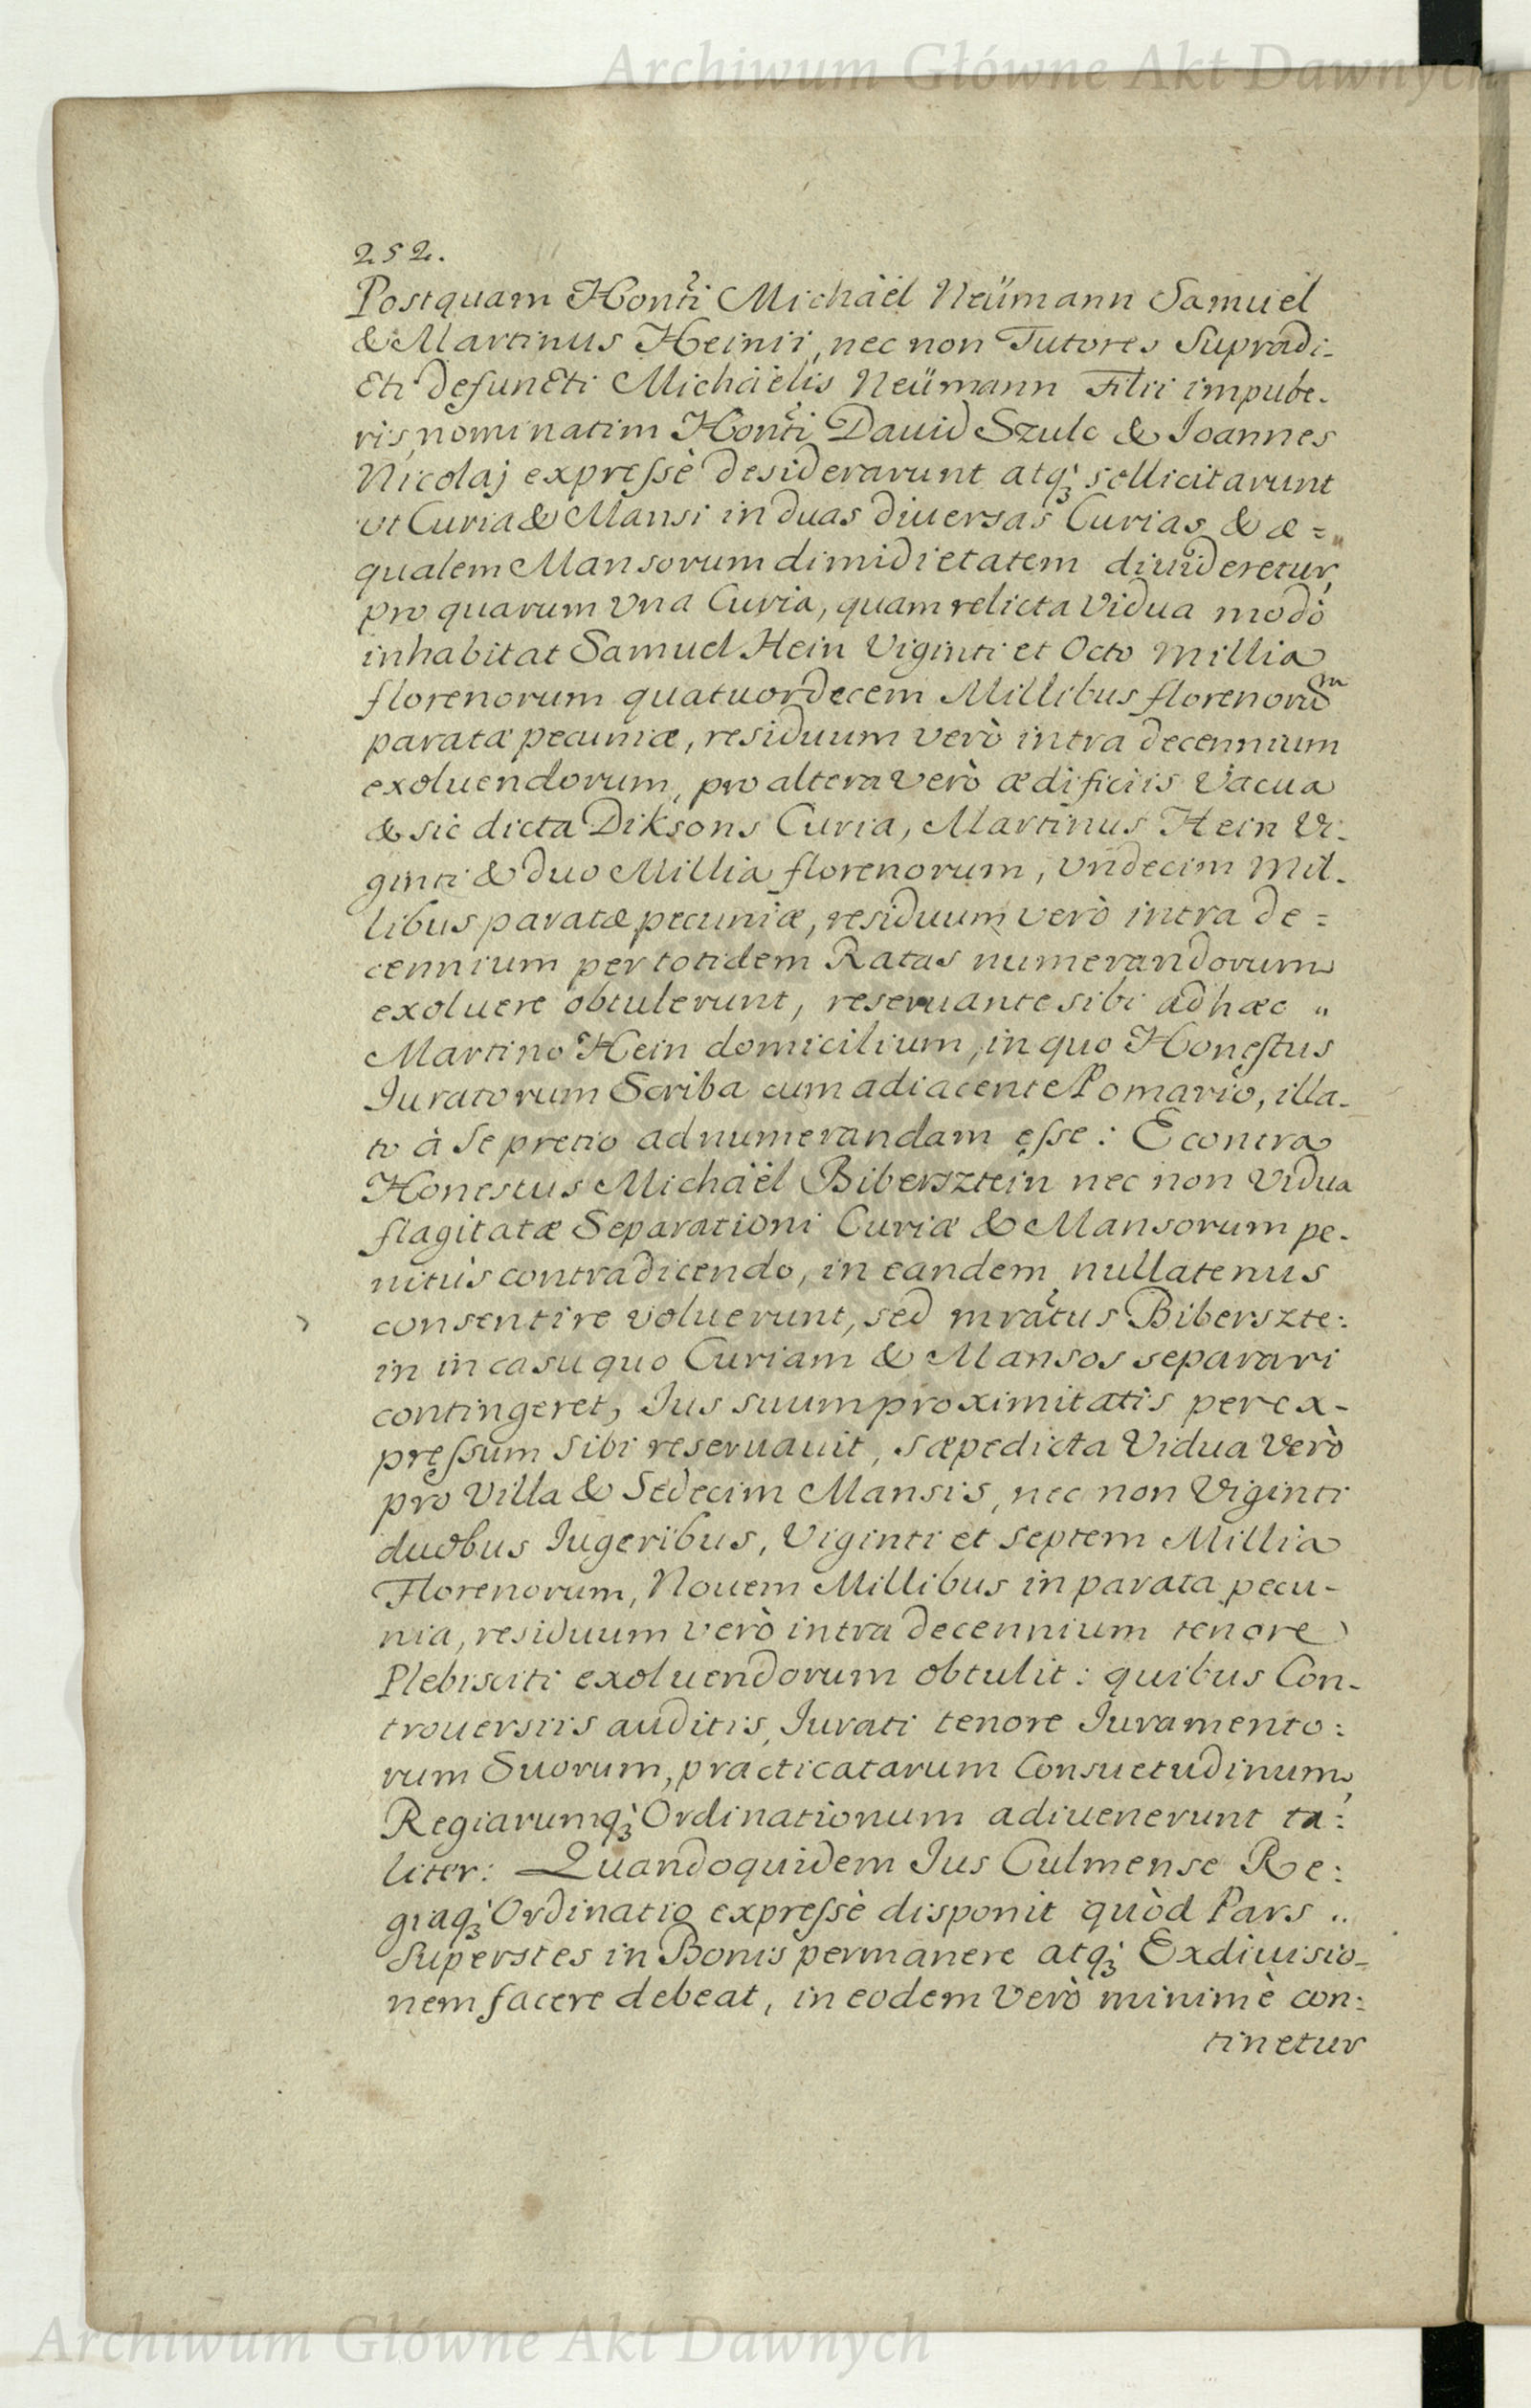 Archiwum Główne Akt Dawnych
252.
Postquam Honti Michäel Neümann Samuel
& Martinus Heinii, nec non Tutores Supradi-
cti defuncti Michäelis Neümann Filii impube-
ris, nominatim Honti David Szulc & Joannes
Nicolaj expressè desiderarunt atq; sollicitarunt
vt Curia & Mansi in duas diuersas Curias & æ=
qualem Mansorum dimidietatem diuideretur,
pro quarum vna Curia, quam relicta Vidua modò
inhabitat Samuel Hein Viginti et Octo Millia
florenorum quatuordecem Millibus florenorum
paratæ pecuniæ, residuum verò intra decennium
exoluendorum, pro altera verò ædificiis Vacua
& sic dicta Diksons Curia, Martinus Hein Vi-
ginti & duo Millia florenorum, Vndecim Mil-
libus paratæ pecuniæ, residuum verò intra de=
cennium per totidem Ratas numerandorum
exoluere obtulerunt, reseruante sibi adhæc "
Martino Hein domicilium, in quo Honestus
Juratorum Scriba cum adiacente Pomario, illa-
to à Se pretio adnumerandam esse: E contra
Honestus Michäel Bibersztein nec non Vidua
flagitatæ Separationi Curiæ & Mansorum pe-
nitùs contradicendo, in eandem nullatenus
consentire voluerunt, sed mratus Biberszte:
in in casu quo Curiam & Mansos separari
contingeret, Jus suum proximitatis per ex-
pressum sibi reseruauit, sæpedicta Vidua Verò
pro Villa & Sedecim Mansis, nec non Viginti
duobus Jugeribus, Viginti et septem Millia
Florenorum, Nouem Millibus in parata pecu-
nia, residuum verò intra decennium tenore
Plebisciti exoluendorum obtulit: quibus Con-
trouersiis auditis, Jurati tenore Juramento:
rum Suorum, practicatarum Consuetudinum,
Regiarumq; Ordinationum adiuenerunt ta:
liter: Quandoquidem Jus Culmense Re:
giaq; Ordinatio expressè disponit quòd Pars "
Superstes in Bonis permanere atq; Exdiuisio-
nem facere debeat, in eodem Verò minimè con:
tinetur
Archiwum Główne Akt Dawnych